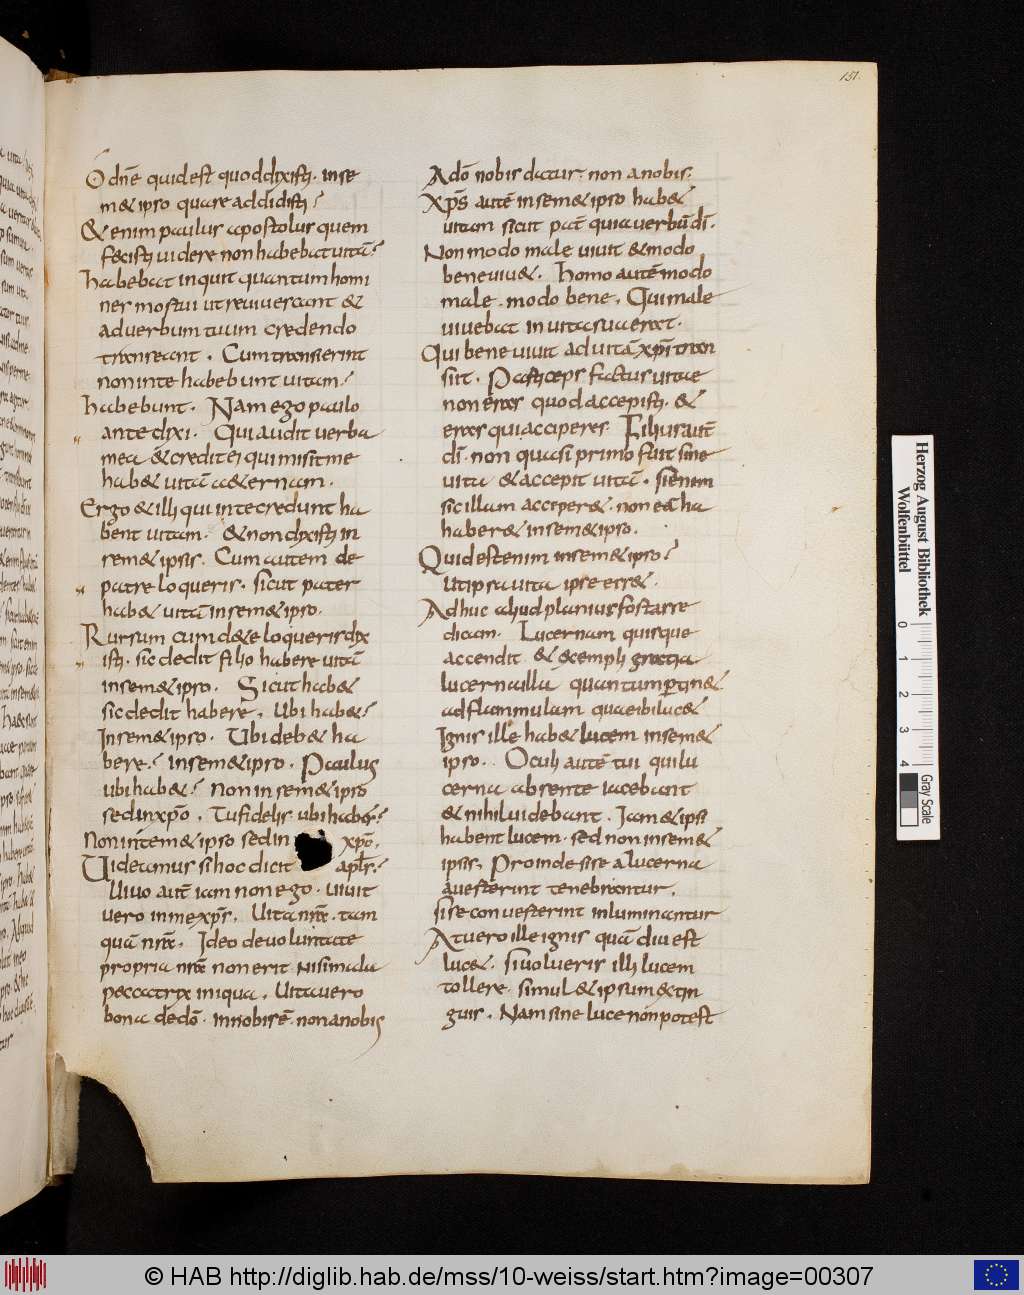 151.
O dn̄e quid est quod dixisti. in se
m& ipso quare addidisti?
& enim paulus apostolus quem
fecisti uidere non habebat uitā?
habebat inquit quantum homi
nes mortui ut reuiuescant &
ad uerbum tuum credendo
transeant. Cum transierint
non in te habebunt uitam?
habebunt. Nam ego paulo
ante dixi. Qui audit uerba
mea & credit ei qui misit me
hab& uitā a&ernam.
Ergo & illi qui in te credunt ha
bent uitam. & non dixisti in
sem&ipsis. Cum autem de
patre loqueris. sicut pater
hab& uitā insem&ipso.
Rursum cum de te loqueris dix
isti. sic dedit filio habere uitā
insem&ipso. Sicut hab&
sic dedit habere. Ubi hab&?
Insem&ipso. Ubi deb& ha
bere? insem&ipso. Paulus
ubi hab&? Non in sem&ipso
sed in xp̄o. Tu fidelis ubi habes?
Non in tem&ipso sed in xp̄o.
Uideamus si hoc dicit apl̄s?
Uiuo aut̄ iam non ego. uiuit
uero in me xp̄s. Uita nr̄a. tam
quā nr̄a. Ideo de uoluntate
propria nr̄a non erit nisi mala
peccatrix iniqua. Uita uero
bona de dō. in nobis ē. non a nobis
A dō nobis datur. non a nobis.
Xp̄s autē insem&ipso hab&
uitam sicut pat̄ quia uerbū dī.
Non modo male uiuit & modo
bene uiu&. homo autē modo
male. modo bene. Qui male
uiuebat in uita sua erat.
Qui bene uiuit ad uitā xp̄i tran
siit. Particeps factus uitae
non eras quod accepisti. &
eras qui acciperes. Filius aut̄
dī. non quasi primo fuit sine
uita & accepit uitā. si enim
sic illam acciper&. non eā ha
haber& insem&ipso.
Quid est enim insem&ipso?
Ut ipsa uita ipse ess&.
Adhuc aliud planius fortasse
dicam. Lucernam quisque
accendit & exempli gratia
lucerna illa quantum ptin&
ad flammulam quae ibi luc&
Ignis ille hab& lucem insem&
ipso. Oculi autē tui qui lu
cerna absente iacebant
& nihil uidebant. Iam & ipsi
habent lucem. sed non insem&
ipsis. Proinde si se a lucerna
auerterint tenebrantur.
si se conuerterint inluminantur
At uero ille ignis quā diu est
luc&. si uolueris illi lucem
tollere. simul & ipsum extin
guis. Nam sine luce non potest
Herzog August Bibliothek
Wolfenbüttel
0 1 2 3 4
Gray Scale
© HAB http://diglib.hab.de/mss/10-weiss/start.htm?image=00307